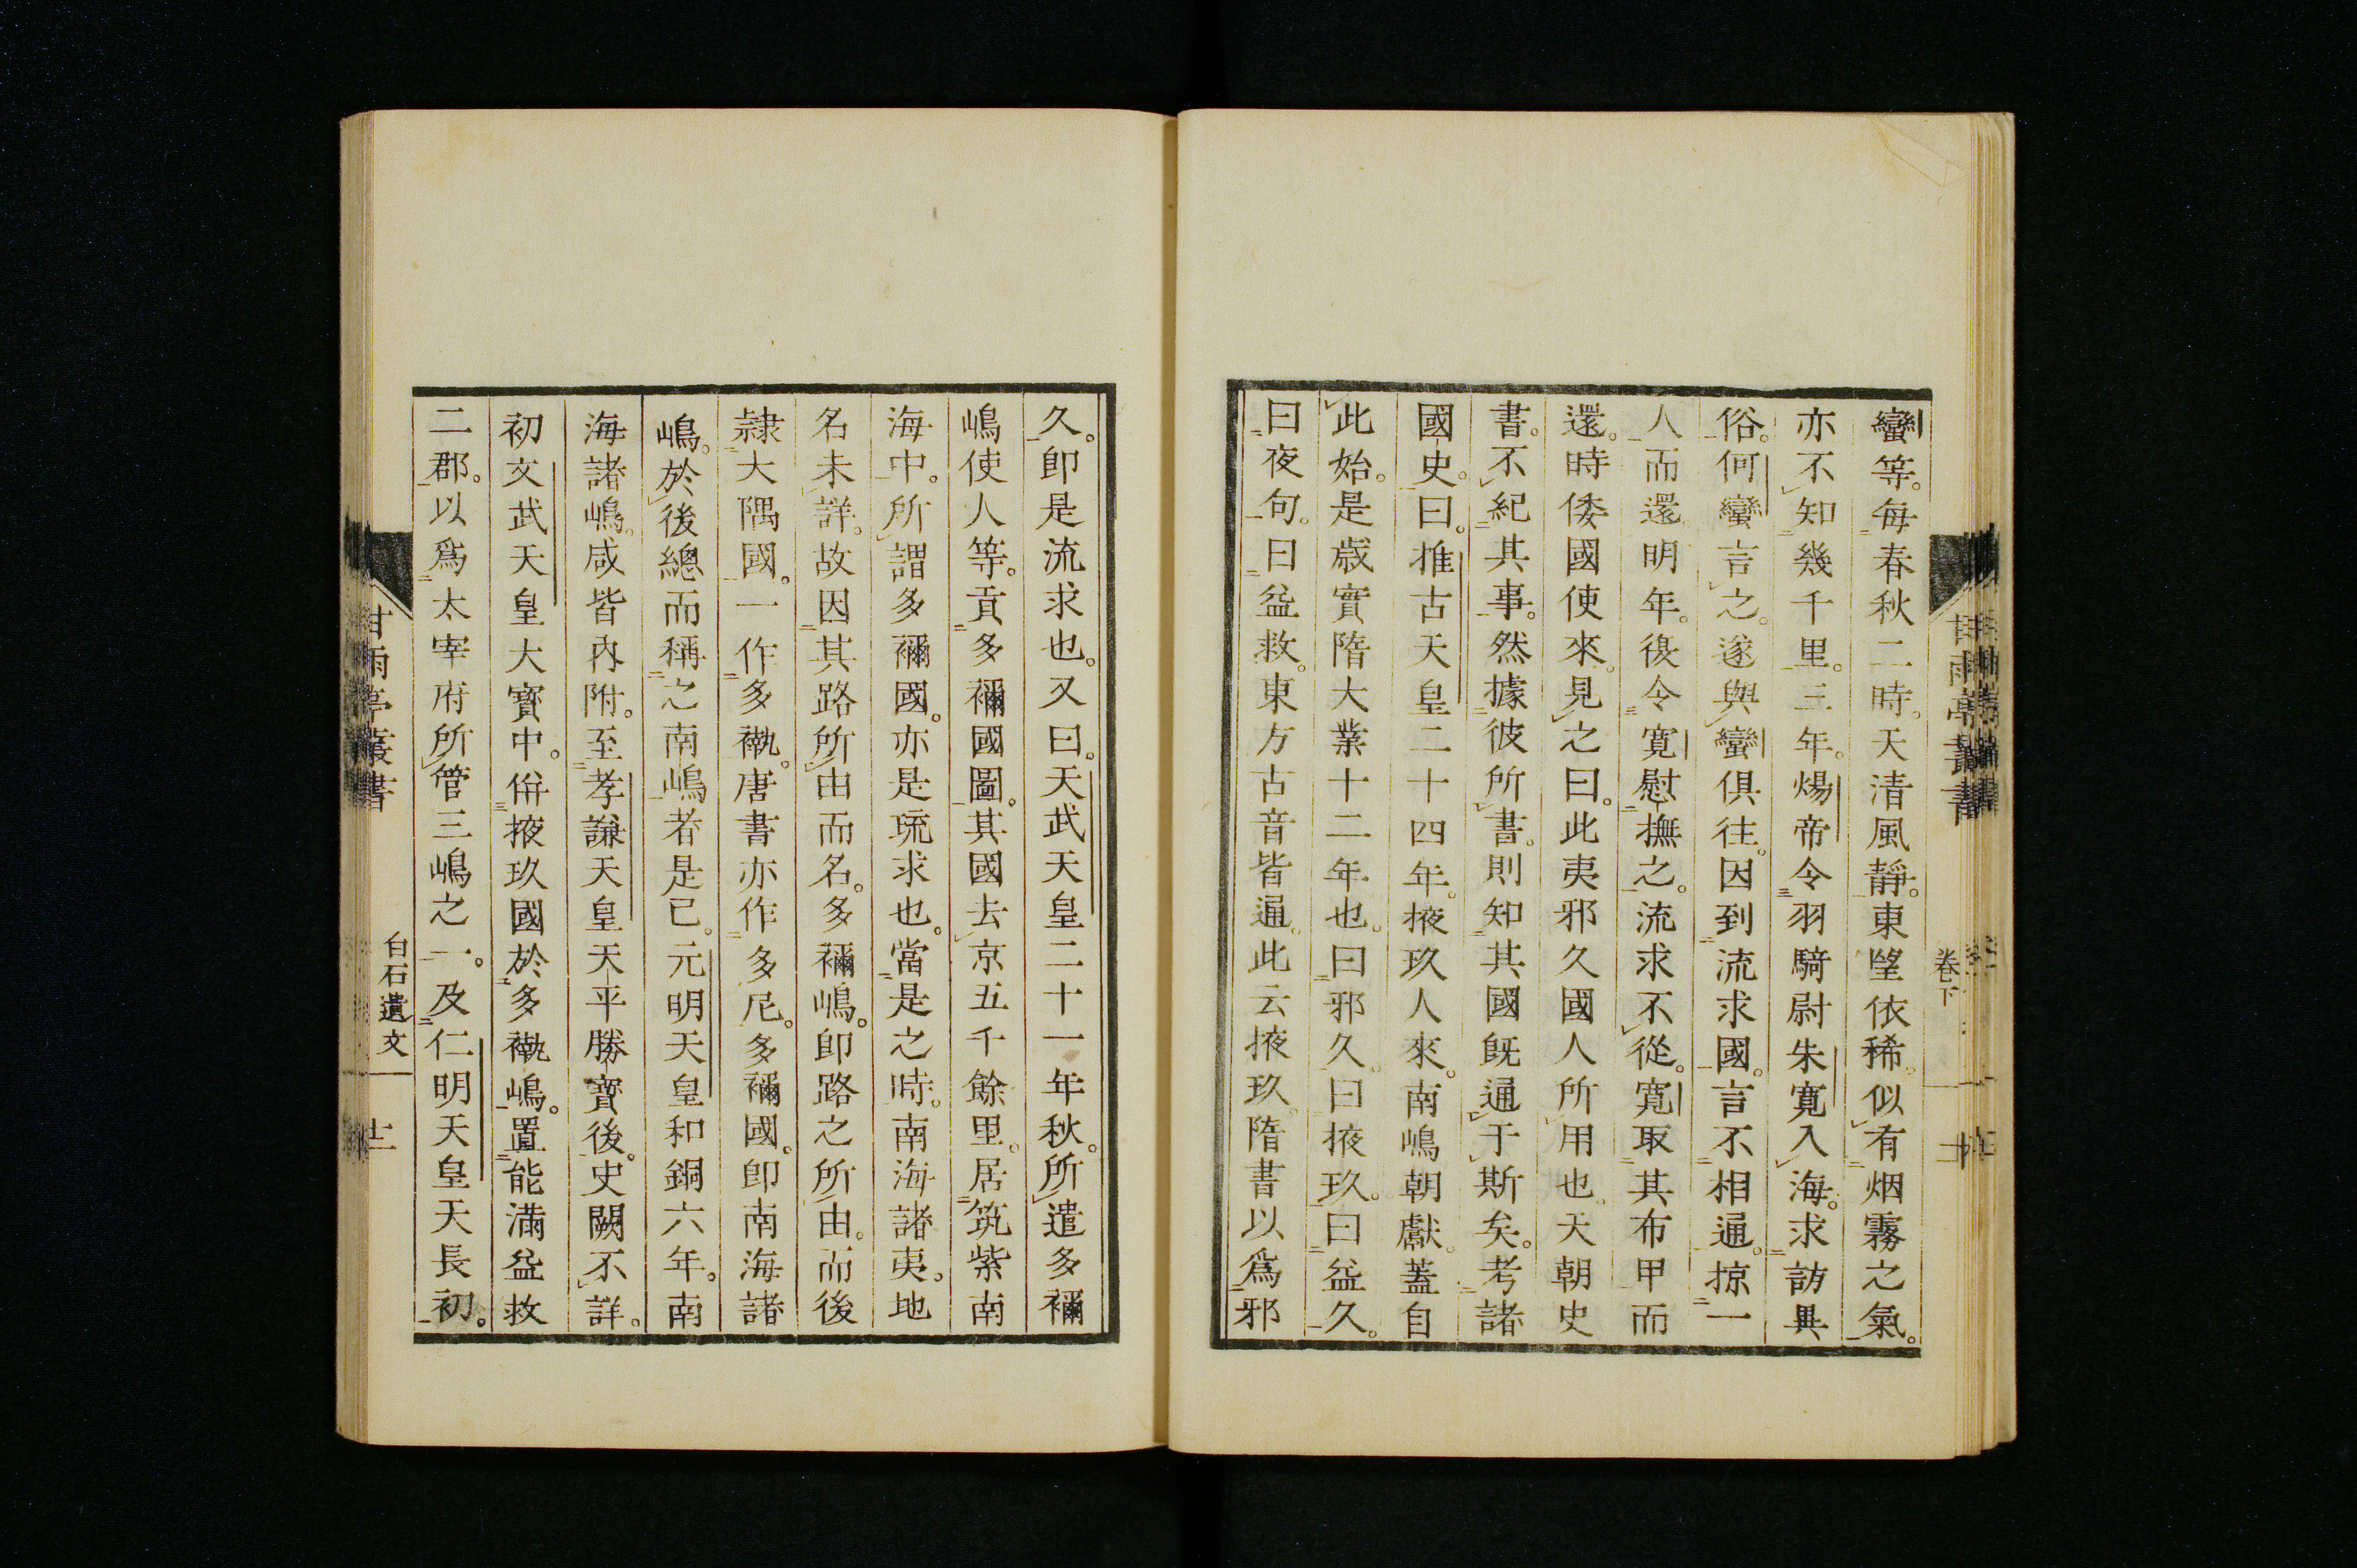 蠻等。每春秋二時。天清風靜。東望依稀。似有烟霧之氣。
亦不知幾千里。三年。煬帝令羽騎尉朱寬入海。求訪異
俗。何蠻言之。遂與蠻俱往。因到流求國。言不相通。掠一
人而還。明年。復令寬慰撫之。流求不從。寬取其布甲而
還。時倭國使來。見之曰。此夷邪久國人所用也。天朝史
書。不紀其事。然據彼所書。則知其國既通于斯矣。考諸
國史。曰。推古天皇二十四年。掖玖人來。南嶋朝獻。蓋自
此始。是歲實隋大業十二年也。曰邪久。曰掖玖。曰益久。
曰夜句。曰益救。東方古音皆通。此云掖玖。隋書以爲邪
久。卽是流求也。又曰。天武天皇二十一年秋。所遣多禰
嶋使人等。貢多禰國圖。其國去京五千餘里。居筑紫南
海中。所謂多禰國。亦是琉求也。當是之時。南海諸夷。地
名未詳。故因其路所由而名。多禰嶋。卽路之所由。而後
隷大隅國。一作多褹。唐書亦作多尼。多禰國。卽南海諸
嶋。於後總而稱之南嶋者是已。元明天皇和銅六年。南
海諸嶋。咸皆內附。至孝謙天皇天平勝寶後。史闕不詳。
初文武天皇大寶中。倂掖玖國於多褹嶋。置能滿益救
二郡。以爲太宰府所管三嶋之一。及仁明天皇天長初。
甘雨亭叢書
卷下
甘雨亭叢書
白石遺文